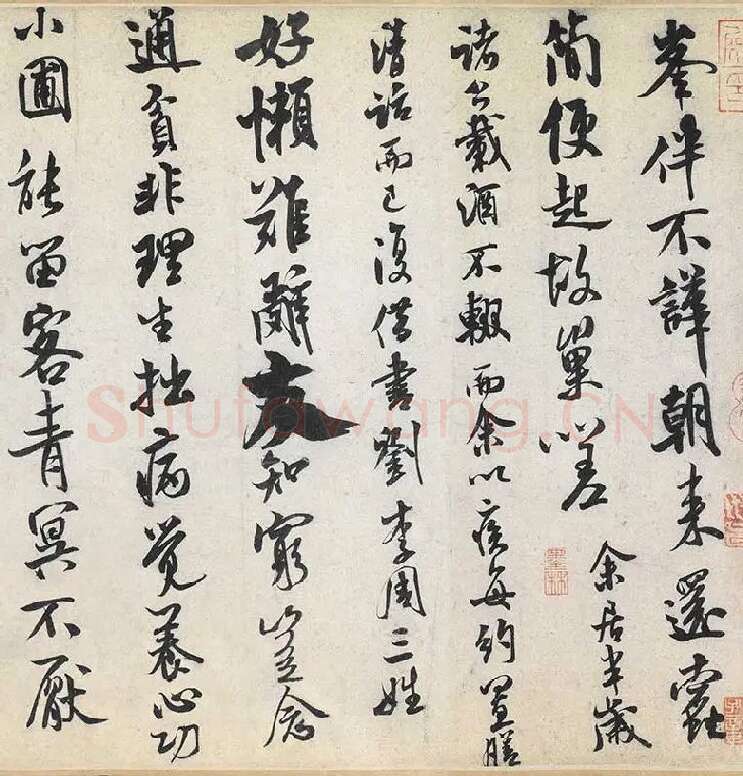 峯伴不譁朝来還蠹
簡便起故巢嗟
余居半歲
諸公載酒不輟而余以疾每約置膳
清話而已復借書劉李周三姓
好懶難辭友知窮豈念
通貧非理生拙病覺養心功
小圃能留客青冥不厭
墨林
Shufawang.CN